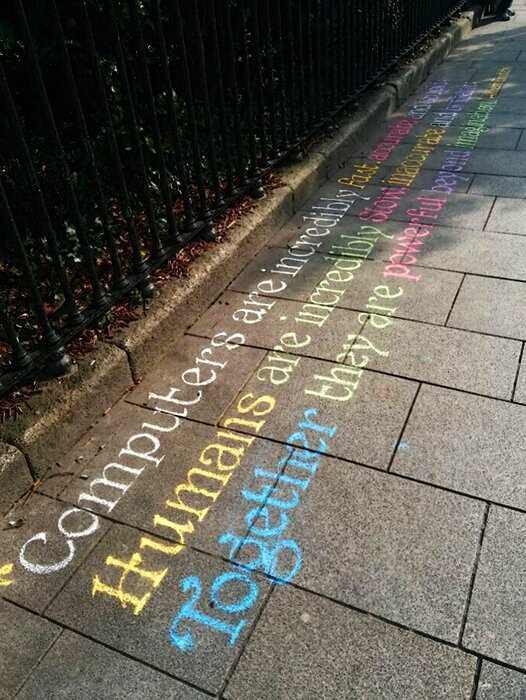 "Computers are incredibly fast accurate
Humans are incredibly slow, inaccurate and
Together they are powerful beyond imagination."